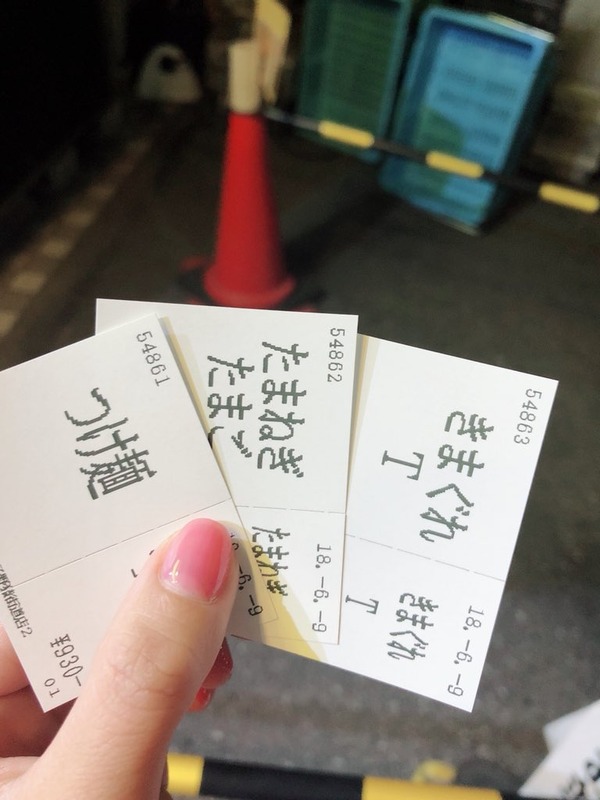 54861
つけ麺
¥930-
01
54862
たまねぎ
たまご
たまねぎ
18.-6.-9
54863
きまぐれ
丁
きまぐれ
丁
18.-6.-9